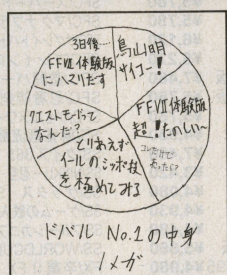 3日後……
FFVII体験版
にハマりだす
鳥山明
サイコー!
FFVII体験版
超!たのしい〜
コレだけで
クエストモードって
なんだ?
とりあえず
イールのシッポ技
を極めてみる
ドバル No.1の中身
1メガ